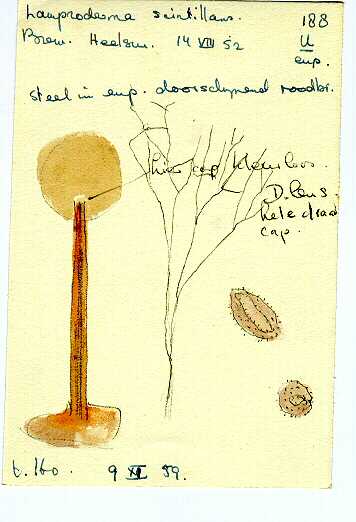 Lamproderma scintillans. 188
Brem. Heelsum. 14 VIII 52 U
enp.
steel in enp. doorschynend roodbr.
hier cap kleurloos.
D. lens.
hele draad
cap.
t. 160. 9 XII 59.